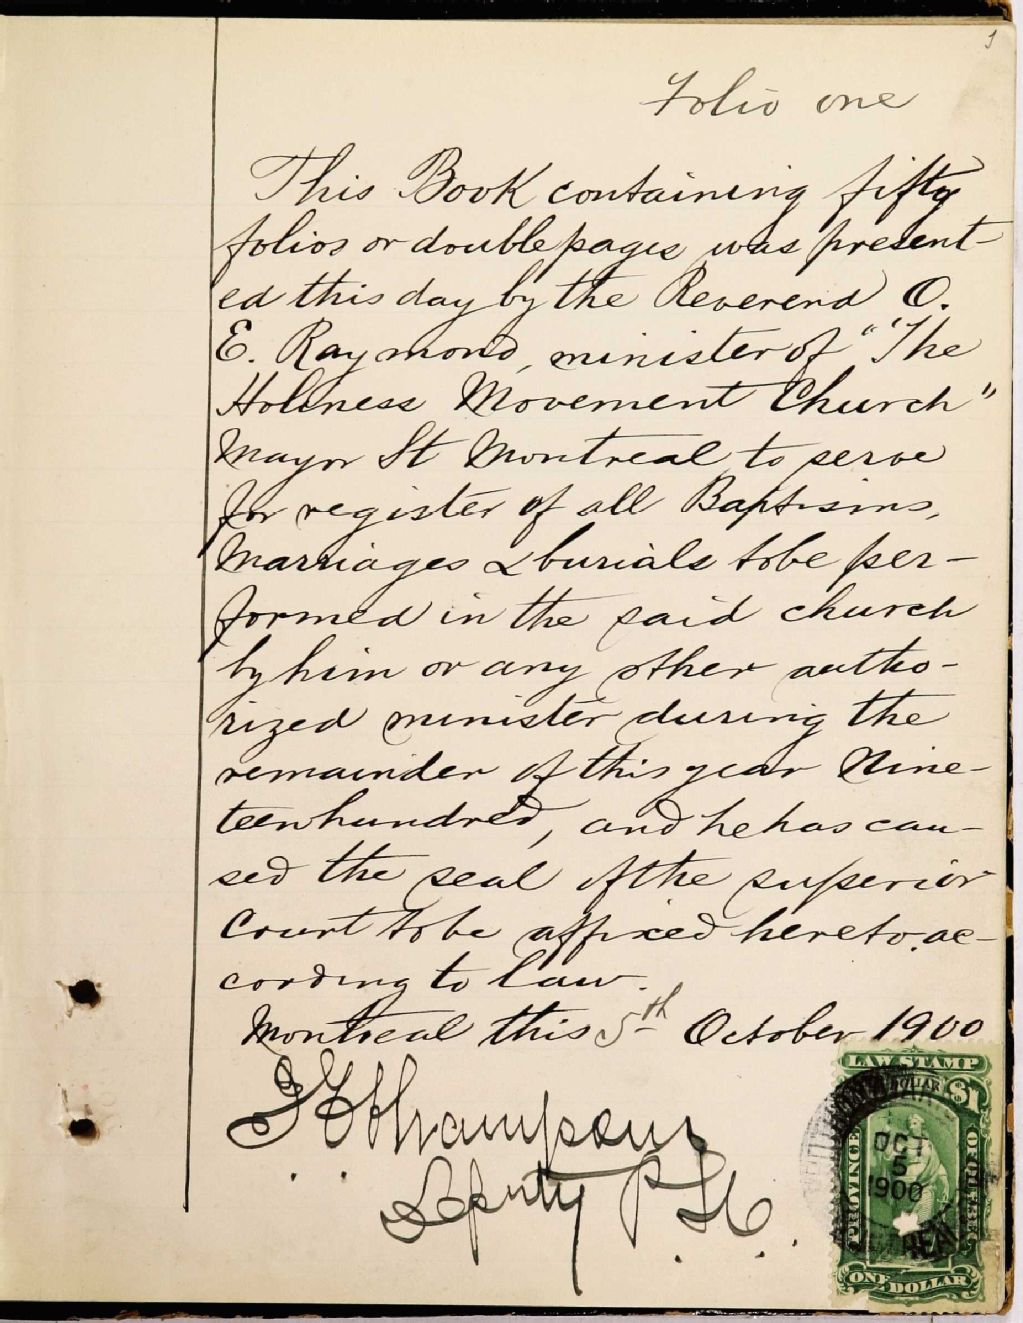 1
Folio one
This Book containing fifty
folios or double pages was present-
ed this day by the Reverend O.
E. Raymond, minister of "The
Holiness Movement Church"
Mayor St Montreal to serve
for register of all Baptisms,
Marriages & burials to be per-
formed in the said church
by him or any other autho-
rized minister during the
remainder of this year Nine-
teen hundred, and he has cau-
sed the seal of the superior
Court to be affixed hereto, ac-
cording to law.
Montreal this 5th October 1900
Deputy P.
LAW STAMP
DOLLAR $1
PROVINCE OF QUEBEC
OCT
5
1900
ONE DOLLAR